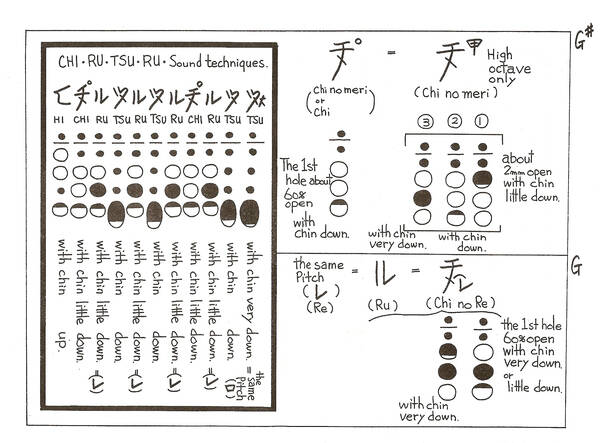 CHI・RU・TSU・RU・Sound techniques.
ヒ チ ル ツ ル ツ ル チ ル ツ ツメ
HI CHI RU TSU RU TSU RU CHI RU TSU TSU
with chin up.
with chin little down. =(レ)
with chin down.
with chin little down. =(レ)
with chin down.
with chin little down. =(レ)
with chin little down. =(レ)
with chin down.
with chin very down. = the same Pitch (ロ)
チ = チ甲
High
octave
only
G#
(Chi no meri)
or
Chi
(Chi no meri)
③ ② ①
The 1st
hole about
60%
open
with
chin down.
about
2mm open
with chin
little down.
with chin
very down.
with chin
down.
G
the same
Pitch
(レ)
(Re)
= ル = チレ
(Ru)
(Chi no Re)
the 1st hole
60% open
with chin
very down.
or
little down.
with chin
very down.